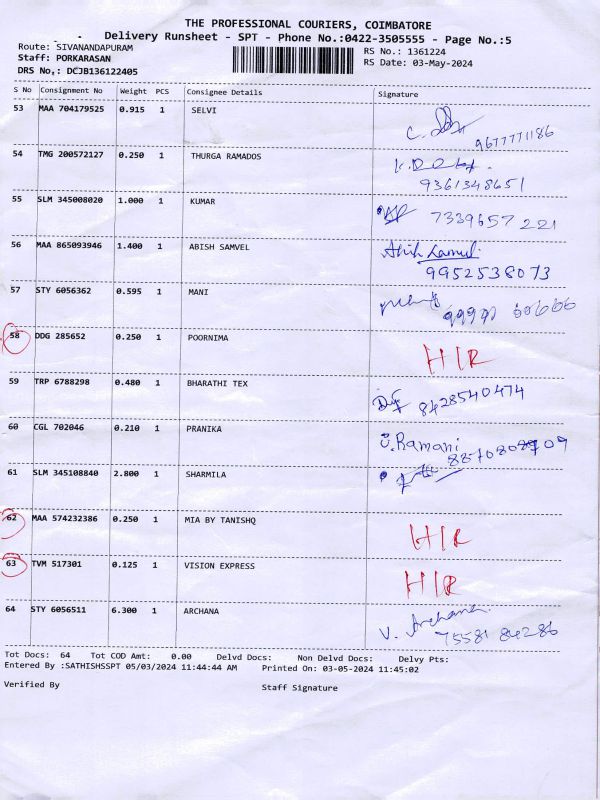 THE PROFESSIONAL COURIERS, COIMBATORE
Delivery Runsheet - SPT - Phone No.:0422-3505555 - Page No.:5
Route: SIVANANDAPURAM RS No.: 1361224
Staff: PORKARASAN RS Date: 03-May-2024
DRS No,: DCJB136122405
S No Consignment No Weight PCS Consignee Details Signature
53 MAA 704179525 0.915 1 SELVI
9677771186
54 TMG 200572127 0.250 1 THURGA RAMADOS
9361348651
55 SLM 345008020 1.000 1 KUMAR
7339657221
56 MAA 865093946 1.400 1 ABISH SAMVEL Abish Samuel
9952538073
57 STY 6056362 0.595 1 MANI
58 DDG 285652 0.250 1 POORNIMA H/R
59 TRP 6788298 0.480 1 BHARATHI TEX
8428540474
60 CGL 702046 0.210 1 PRANIKA U.Ramani
61 SLM 345108840 2.800 1 SHARMILA
62 MAA 574232386 0.250 1 MIA BY TANISHQ H/R
63 TVM 517301 0.125 1 VISION EXPRESS H/R
64 STY 6056511 6.300 1 ARCHANA V. Archana
75581 84286
Tot Docs: 64 Tot COD Amt: 0.00 Delvd Docs: Non Delvd Docs: Delvy Pts:
Entered By :SATHISHSSPT 05/03/2024 11:44:44 AM Printed On: 03-05-2024 11:45:02
Verified By Staff Signature